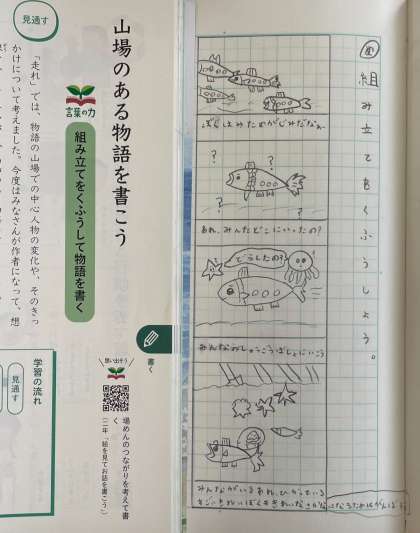 組み立てをくふうしよう。
ぼくはみためがじみだなぁ
?
?
?
あれ、みんなどこにいったの?
どうしたの?
みんながしゅうごうばしょにいこう
みんながいるあれ、ひかっている
きれいぼくもきれいなさかなになるためにがんばろう
山場のある物語を書こう
言葉の力
組み立てをくふうして物語を書く
書く
思い出そう
場めんのつながりを考えて書
く
(二年「絵を見てお話を書こう」)
見通す
「走れ」では、物語の山場での中心人物の変化や、そのきっ
かけについて考えました。今度はみなさんが作者になって、想
学習の流れ
見通す